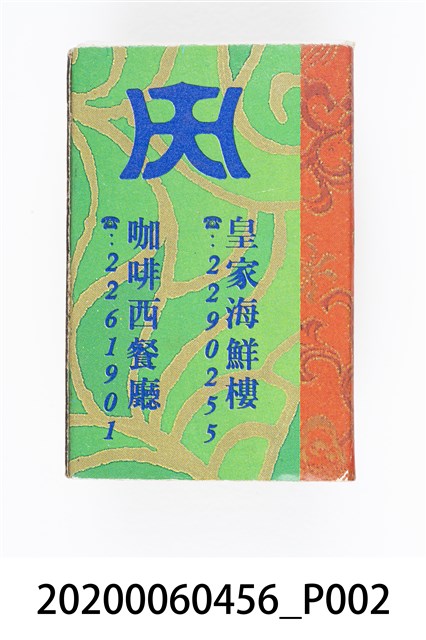 皇家海鮮樓
☎:2290255
咖啡西餐廳
☎:2261901
20200060456_P002